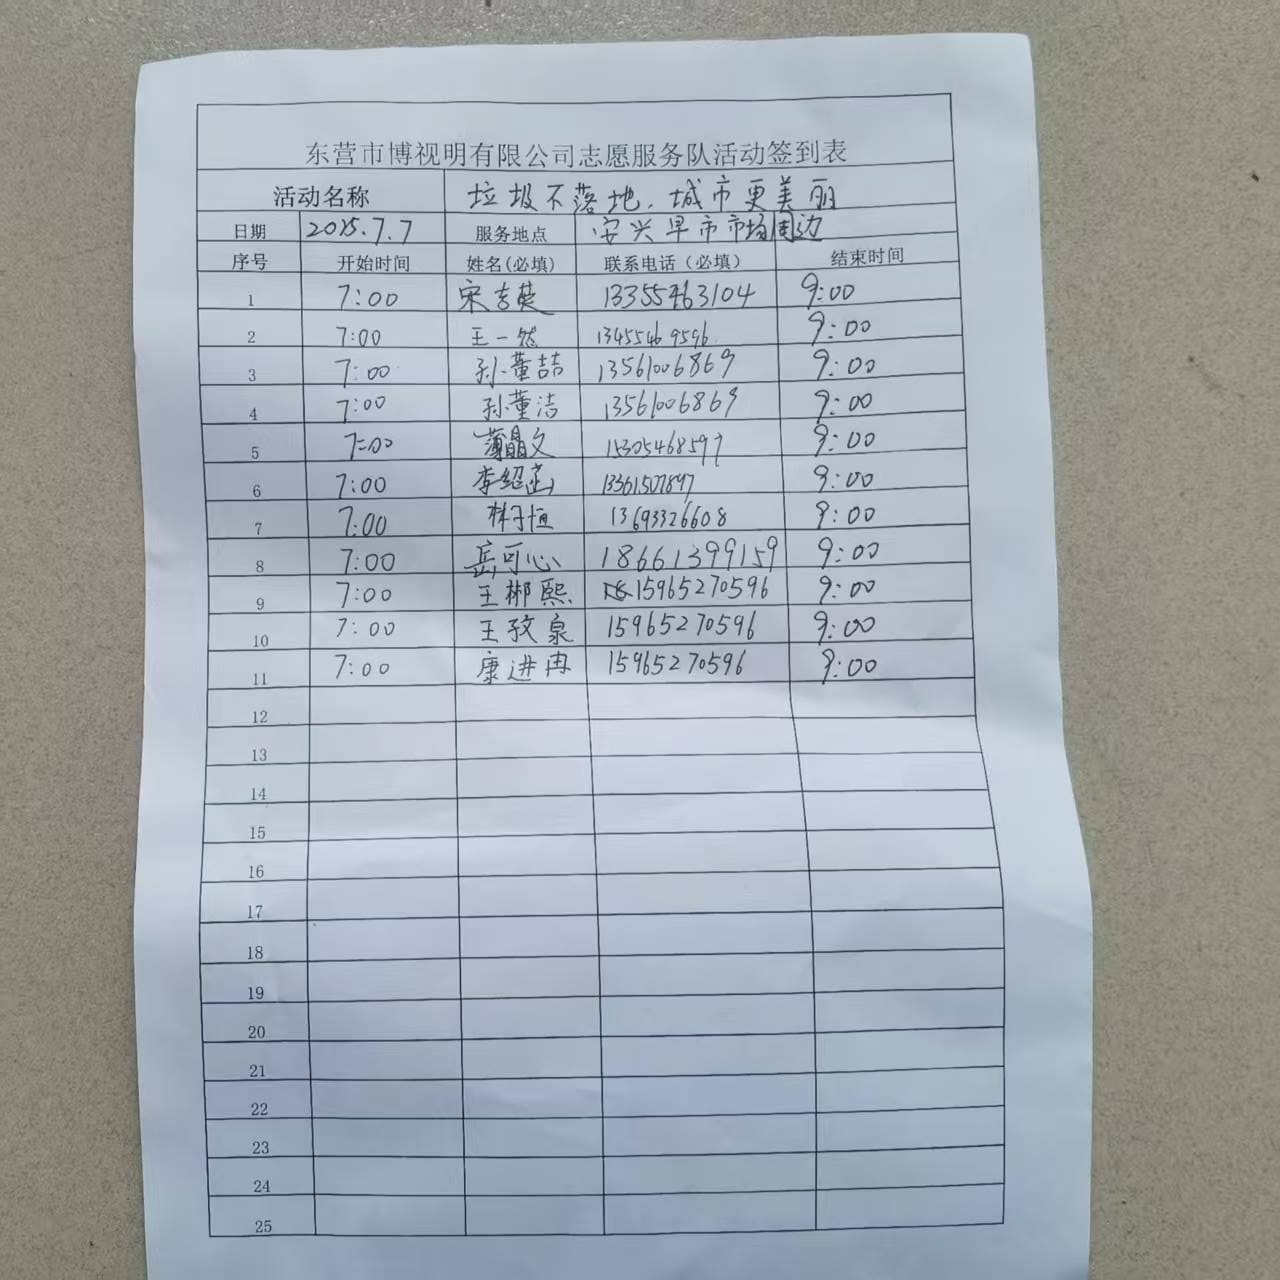 东营市博视明有限公司志愿服务队活动签到表
活动名称 垃圾不落地,城市更美丽
日期 2025.7.7 服务地点 安兴早市市场周边
序号 开始时间 姓名(必填) 联系电话（必填） 结束时间
1 7:00 宋吉英 13355463104 9:00
2 7:00 王一然 13455469596 9:00
3 7:00 孙董喆 13561006869 9:00
4 7:00 孙董洁 13561006869 9:00
5 7:00 薄晶文 15305468597 9:00
6 7:00 李绍 13361507897 9:00
7 7:00 林子恒 13693326608 9:00
8 7:00 岳可心 18661399159 9:00
9 7:00 王郴熙 15965270596 9:00
10 7:00 王孜泉 15965270596 9:00
11 7:00 康进冉 15965270596 9:00
12
13
14
15
16
17
18
19
20
21
22
23
24
25